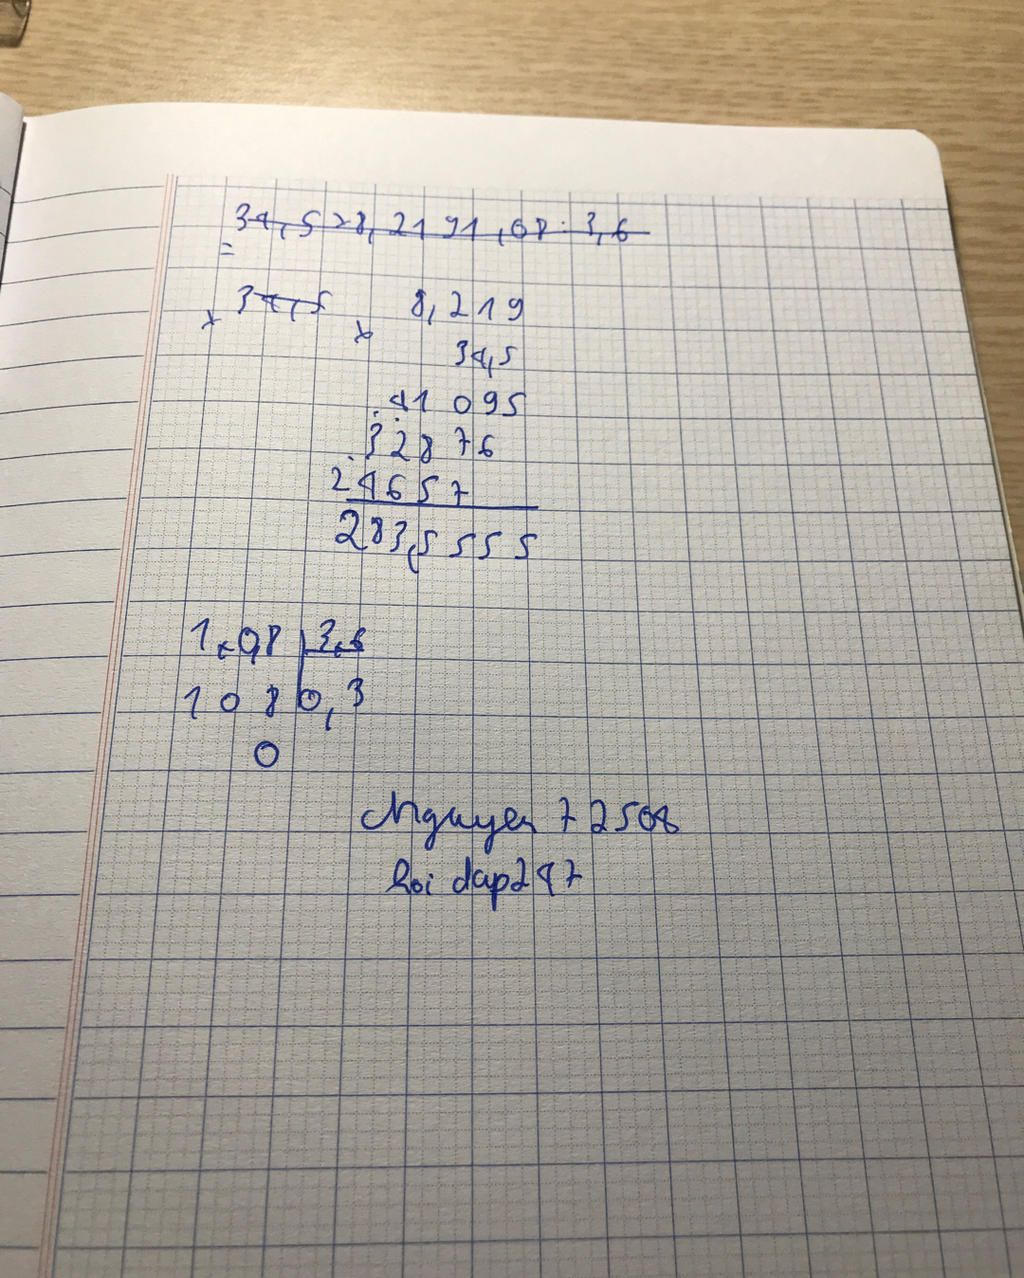 34,5 x 8,219 1,08 : 3,6
=
x 34,5 x 8,219
34,5
41 095
328 76
24657
283,5555
1,08 3,6
108 0,3
0
Nguyen 72508
hoi dap247